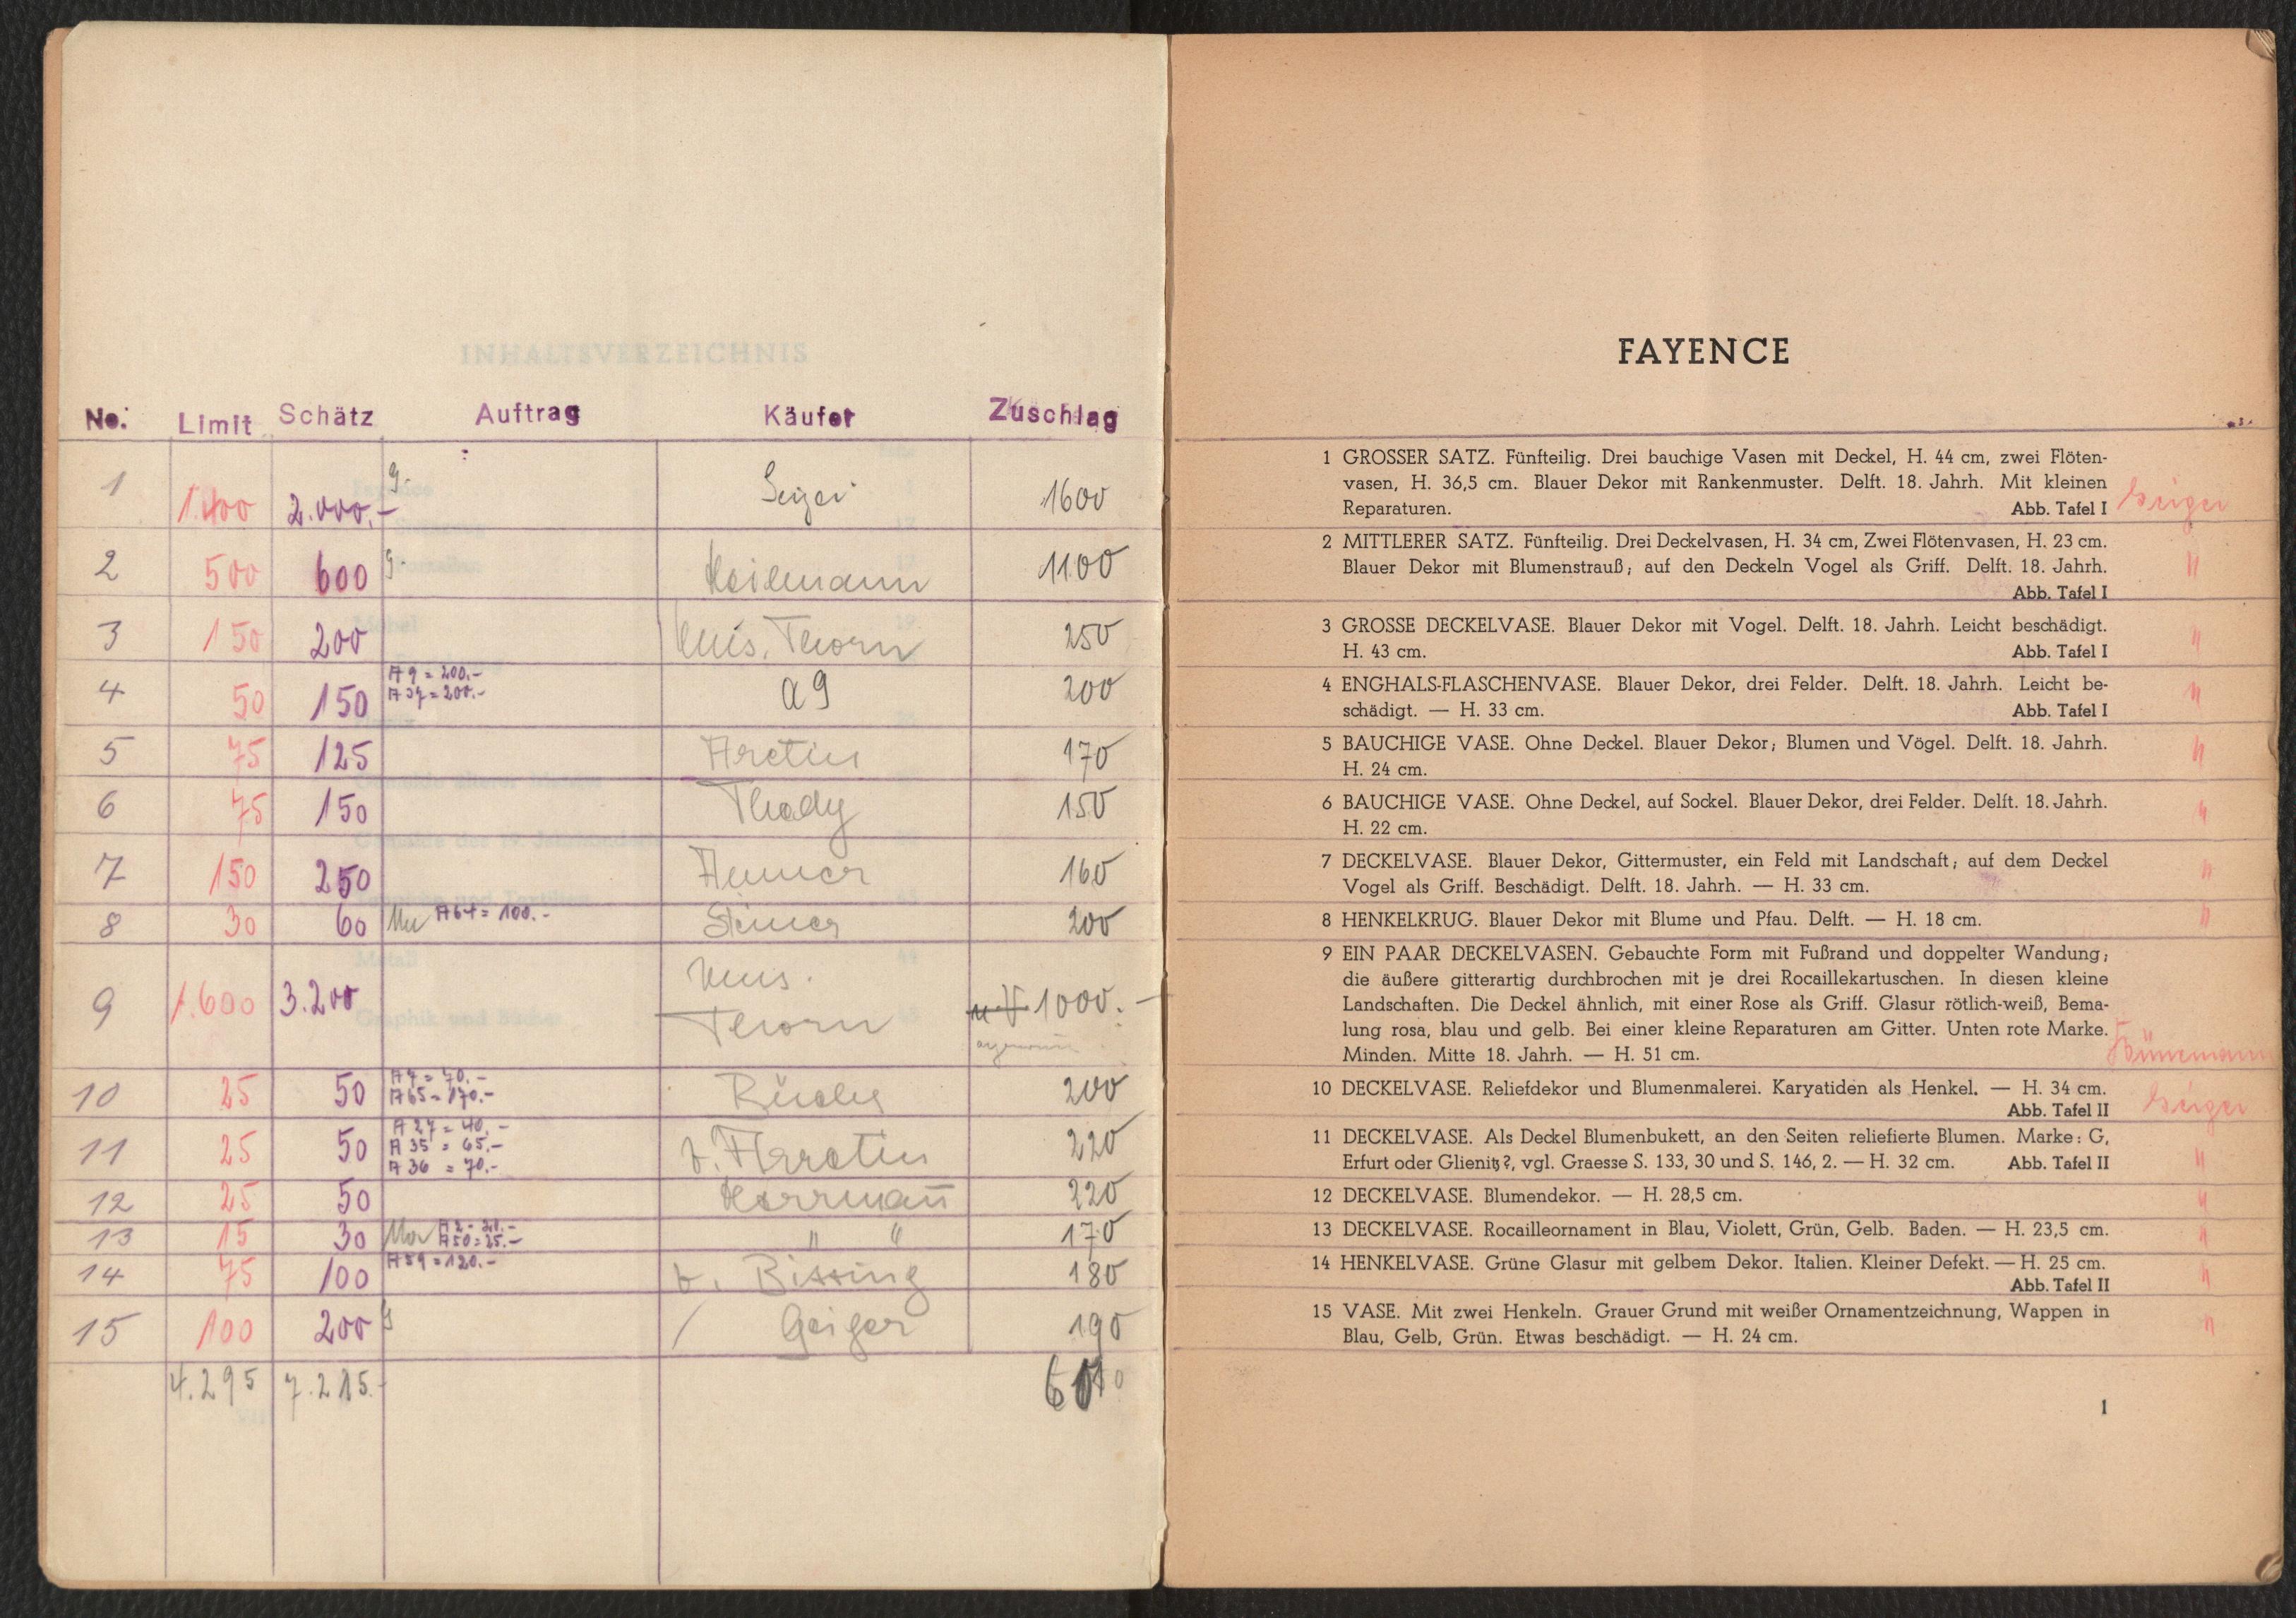 INHALTSVERZEICHNIS
No. Limit Schätz Auftrag Käufer Zuschlag
1 1.400 2.000.- g. 1600
2 500 600 g. 1100
3 150 200 Mus. Thorn 250
4 50 150 A 9 = 200.- A9 200
A 37 = 200.-
5 75 125 Aretin 170
6 75 150 150
7 150 250 160
8 30 60 A 64 = 100.- 200
9 1.600 3.200 Mus. Thorn 1000.-
10 25 50 A 7 = 70.- 200
A 65 = 170.-
11 25 50 A 27 = 40.- v. Aretin 220
A 35 = 65.-
A 36 = 70.-
12 25 50 Herrmann 220
13 15 30 A 50 = 25.- " " 170
14 75 100 A 59 = 120.- v. Bissing 180
15 100 200 g / Geiger 190
4.295 7.215.-
FAYENCE
1 GROSSER SATZ. Fünfteilig. Drei bauchige Vasen mit Deckel, H. 44 cm, zwei Flöten-
vasen, H. 36,5 cm. Blauer Dekor mit Rankenmuster. Delft. 18. Jahrh. Mit kleinen
Reparaturen. Abb. Tafel I Geiger
2 MITTLERER SATZ. Fünfteilig. Drei Deckelvasen, H. 34 cm, Zwei Flötenvasen, H. 23 cm.
Blauer Dekor mit Blumenstrauß; auf den Deckeln Vogel als Griff. Delft. 18. Jahrh. "
Abb. Tafel I
3 GROSSE DECKELVASE. Blauer Dekor mit Vogel. Delft. 18. Jahrh. Leicht beschädigt. "
H. 43 cm. Abb. Tafel I
4 ENGHALS-FLASCHENVASE. Blauer Dekor, drei Felder. Delft. 18. Jahrh. Leicht be- "
schädigt. — H. 33 cm. Abb. Tafel I
5 BAUCHIGE VASE. Ohne Deckel. Blauer Dekor; Blumen und Vögel. Delft. 18. Jahrh. "
H. 24 cm.
6 BAUCHIGE VASE. Ohne Deckel, auf Sockel. Blauer Dekor, drei Felder. Delft. 18. Jahrh. "
H. 22 cm.
7 DECKELVASE. Blauer Dekor, Gittermuster, ein Feld mit Landschaft; auf dem Deckel "
Vogel als Griff. Beschädigt. Delft. 18. Jahrh. — H. 33 cm.
8 HENKELKRUG. Blauer Dekor mit Blume und Pfau. Delft. — H. 18 cm. "
9 EIN PAAR DECKELVASEN. Gebauchte Form mit Fußrand und doppelter Wandung;
die äußere gitterartig durchbrochen mit je drei Rocaillekartuschen. In diesen kleine
Landschaften. Die Deckel ähnlich, mit einer Rose als Griff. Glasur rötlich-weiß, Bema-
lung rosa, blau und gelb. Bei einer kleine Reparaturen am Gitter. Unten rote Marke.
Minden. Mitte 18. Jahrh. — H. 51 cm.
10 DECKELVASE. Reliefdekor und Blumenmalerei. Karyatiden als Henkel. — H. 34 cm.
Abb. Tafel II Geiger
11 DECKELVASE. Als Deckel Blumenbukett, an den Seiten reliefierte Blumen. Marke: G,
Erfurt oder Glienitz?, vgl. Graesse S. 133, 30 und S. 146, 2. — H. 32 cm. Abb. Tafel II "
12 DECKELVASE. Blumendekor. — H. 28,5 cm. "
13 DECKELVASE. Rocailleornament in Blau, Violett, Grün, Gelb. Baden. — H. 23,5 cm. "
14 HENKELVASE. Grüne Glasur mit gelbem Dekor. Italien. Kleiner Defekt. — H. 25 cm. "
Abb. Tafel II
15 VASE. Mit zwei Henkeln. Grauer Grund mit weißer Ornamentzeichnung, Wappen in "
Blau, Gelb, Grün. Etwas beschädigt. — H. 24 cm.
1